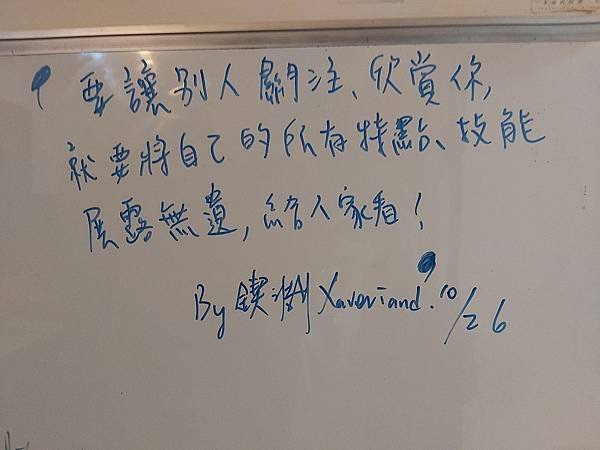 要讓別人關注、欣賞你,
就要將自己的所有特點、技能
展露無遺,給人家看!
By 鍥 Xaveriand. 10/26